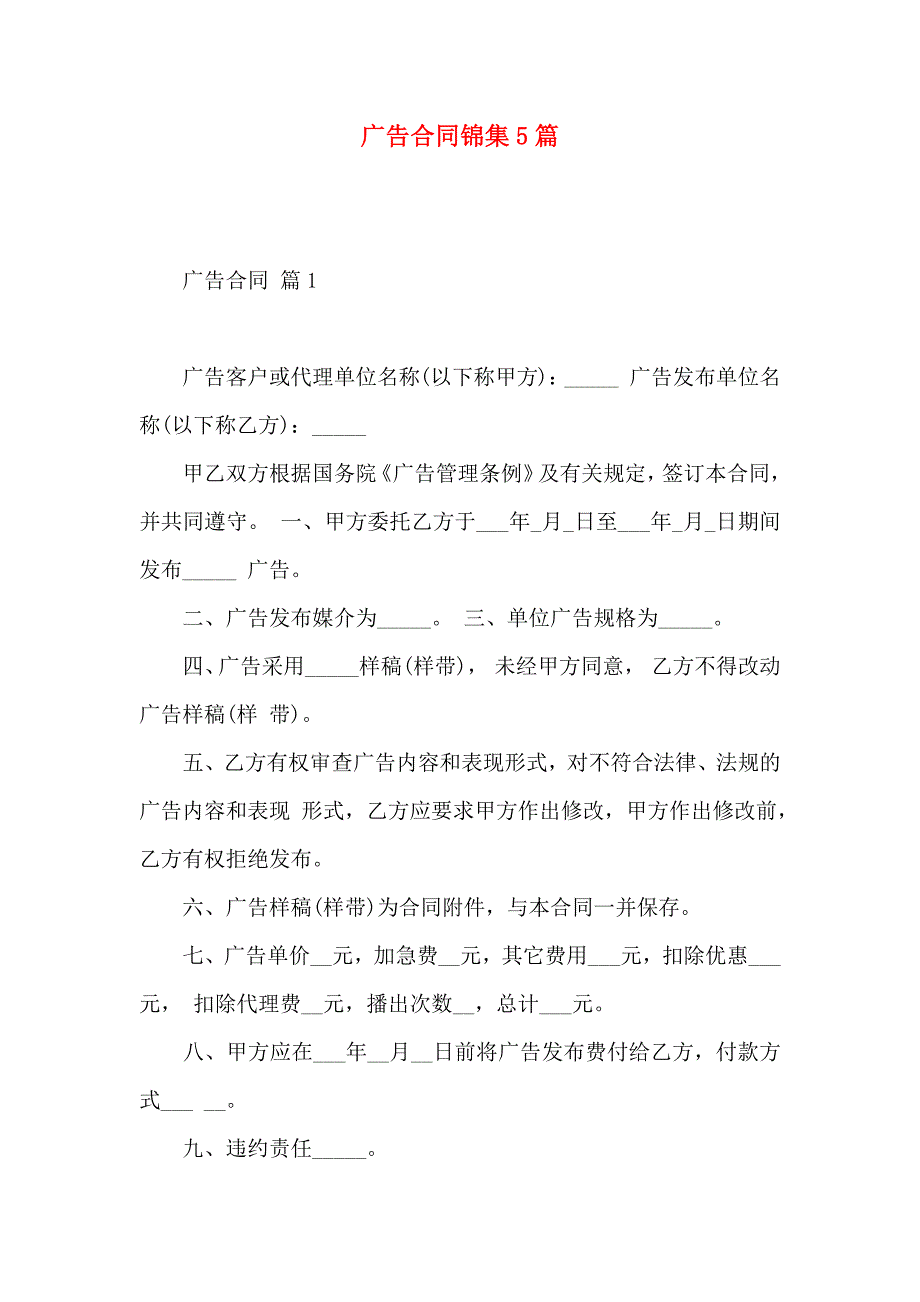 广告合同锦集5篇
广告合同 篇1
广告客户或代理单位名称(以下称甲方)：_____ 广告发布单位名
称(以下称乙方)：_____
甲乙双方根据国务院《广告管理条例》及有关规定，签订本合同，
并共同遵守。 一、甲方委托乙方于___年_月_日至___年_月_日期间
发布_____ 广告。
二、广告发布媒介为_____。 三、单位广告规格为_____。
四、广告采用_____样稿(样带)， 未经甲方同意， 乙方不得改动
广告样稿(样 带)。
五、乙方有权审查广告内容和表现形式，对不符合法律、法规的
广告内容和表现 形式，乙方应要求甲方作出修改，甲方作出修改前，
乙方有权拒绝发布。
六、广告样稿(样带)为合同附件，与本合同一并保存。
七、广告单价__元，加急费__元，其它费用___元，扣除优惠___
元， 扣除代理费__元，播出次数__，总计___元。
八、甲方应在___年__月__日前将广告发布费付给乙方，付款方
式___ __。
九、违约责任_____。